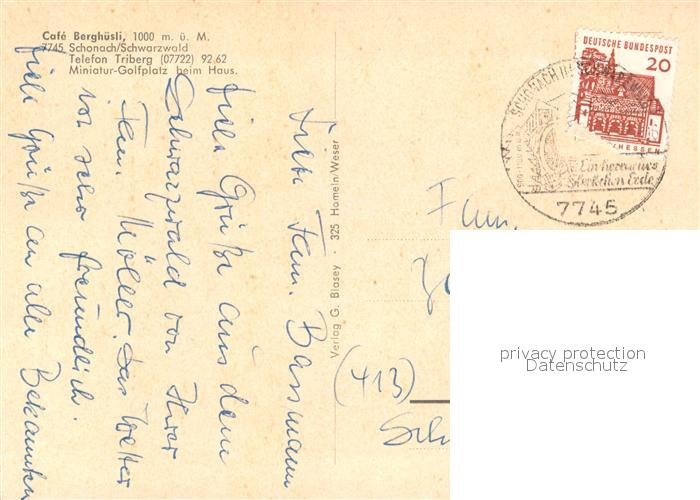 Café Berghüsli, 1000 m. ü. M.
7745 Schonach/Schwarzwald
Telefon Triberg (07722) 92 62
Miniatur-Golfplatz beim Haus.
Liebe Fam. Bassmann
Viele Grüße aus dem
Schwarzwald von Ihrer
Fam. Möller. Das Wetter
vor sehr freundlich.
Viele Grüße an alle Bekannten
Verlag G. Blasey · 325 Hameln/Weser
DEUTSCHE BUNDESPOST
20
HESSEN
SCHONACH
Ein herrliches
Fleckchen Erde
7745
Fam.
(413)
privacy protection
Datenschutz